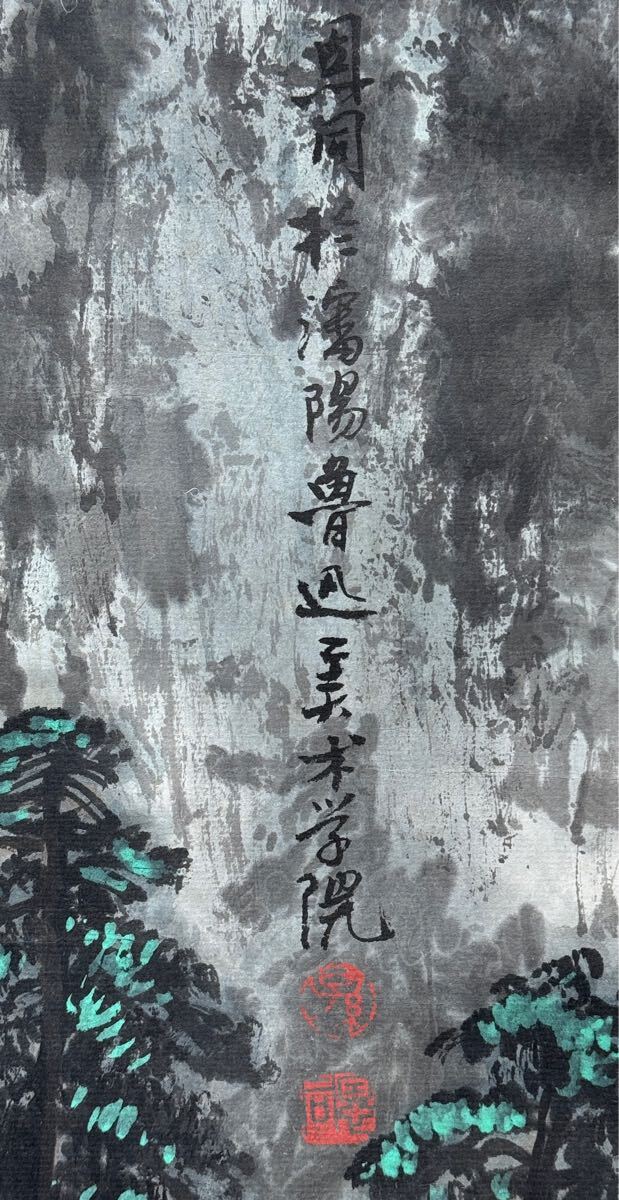 恩同於瀋陽魯迅美术学院